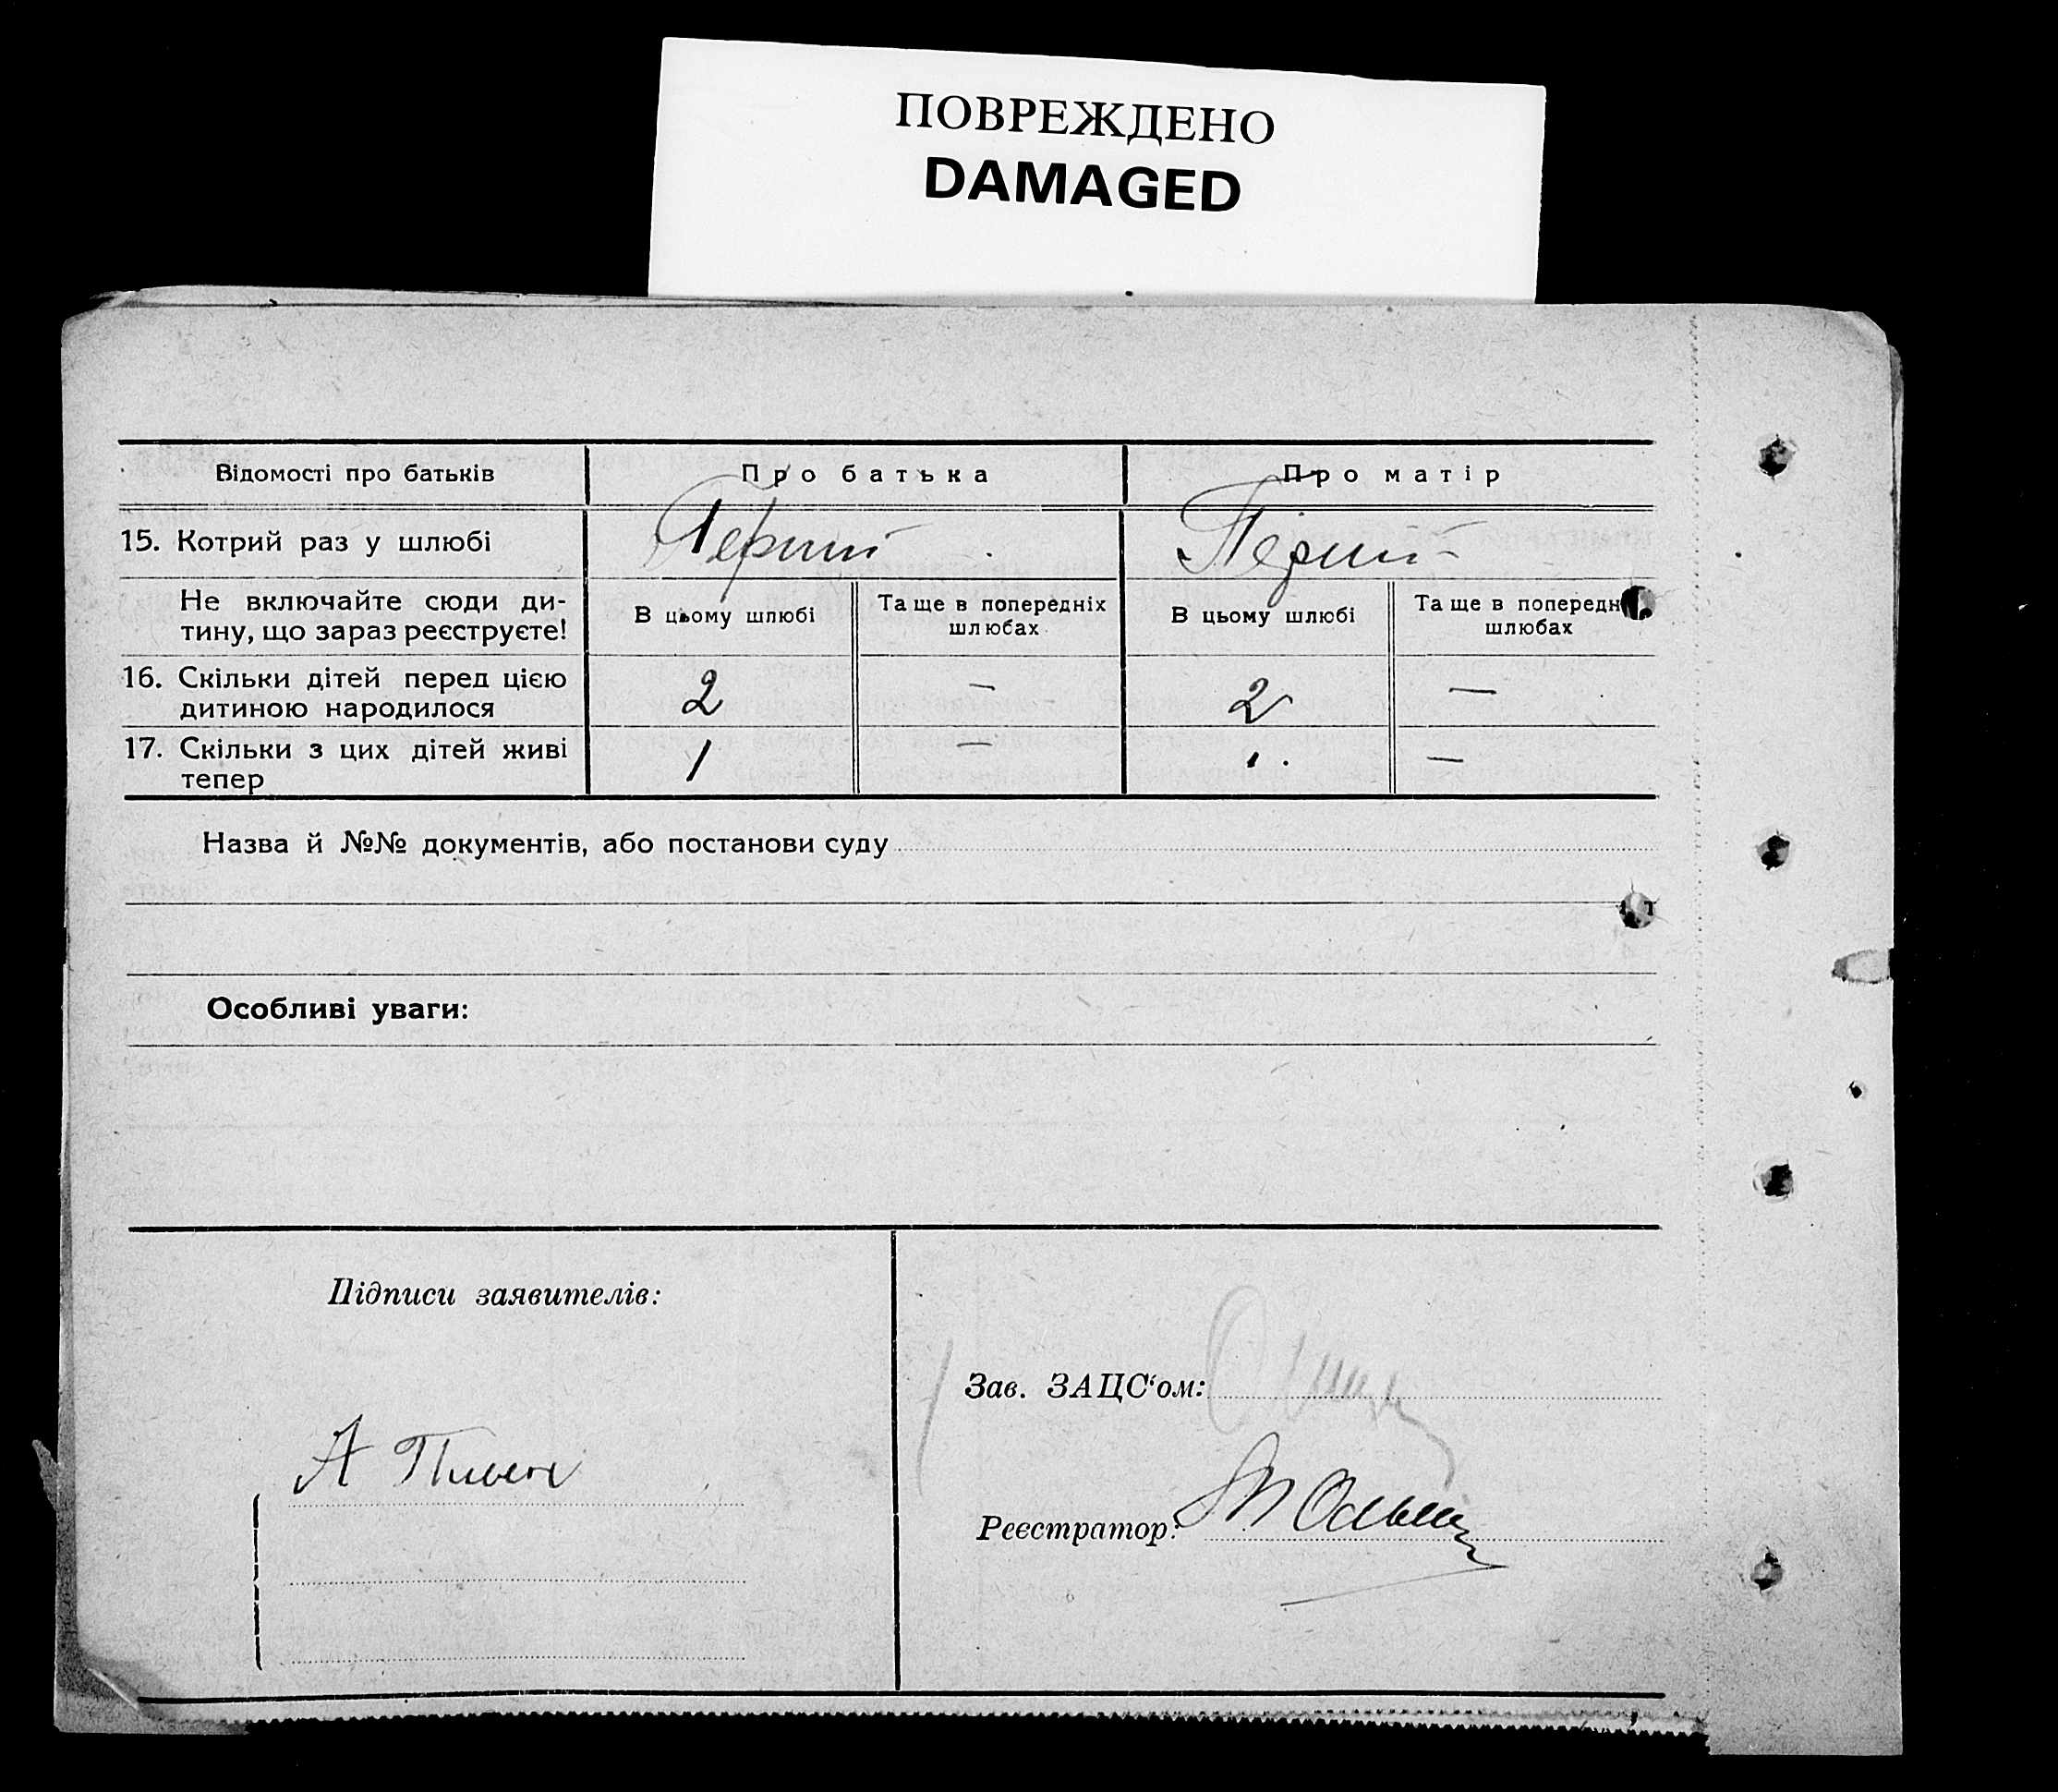 ПОВРЕЖДЕНО
DAMAGED
Відомості про батьків
Про батька
Про матір
15. Котрий раз у шлюбі
Перший
Перший
Не включайте сюди ди-
тину, що зараз реєструєте!
В цьому шлюбі
Та ще в попередніх
шлюбах
В цьому шлюбі
Та ще в попередн
шлюбах
16. Скільки дітей перед цією
дитиною народилося
2
—
2
—
17. Скільки з цих дітей живі
тепер
1
—
1
—
Назва й №№ документів, або постанови суду
Особливі уваги:
Підписи заявителів:
А
Зав. ЗАЦС‘ом:
Реєстратор: